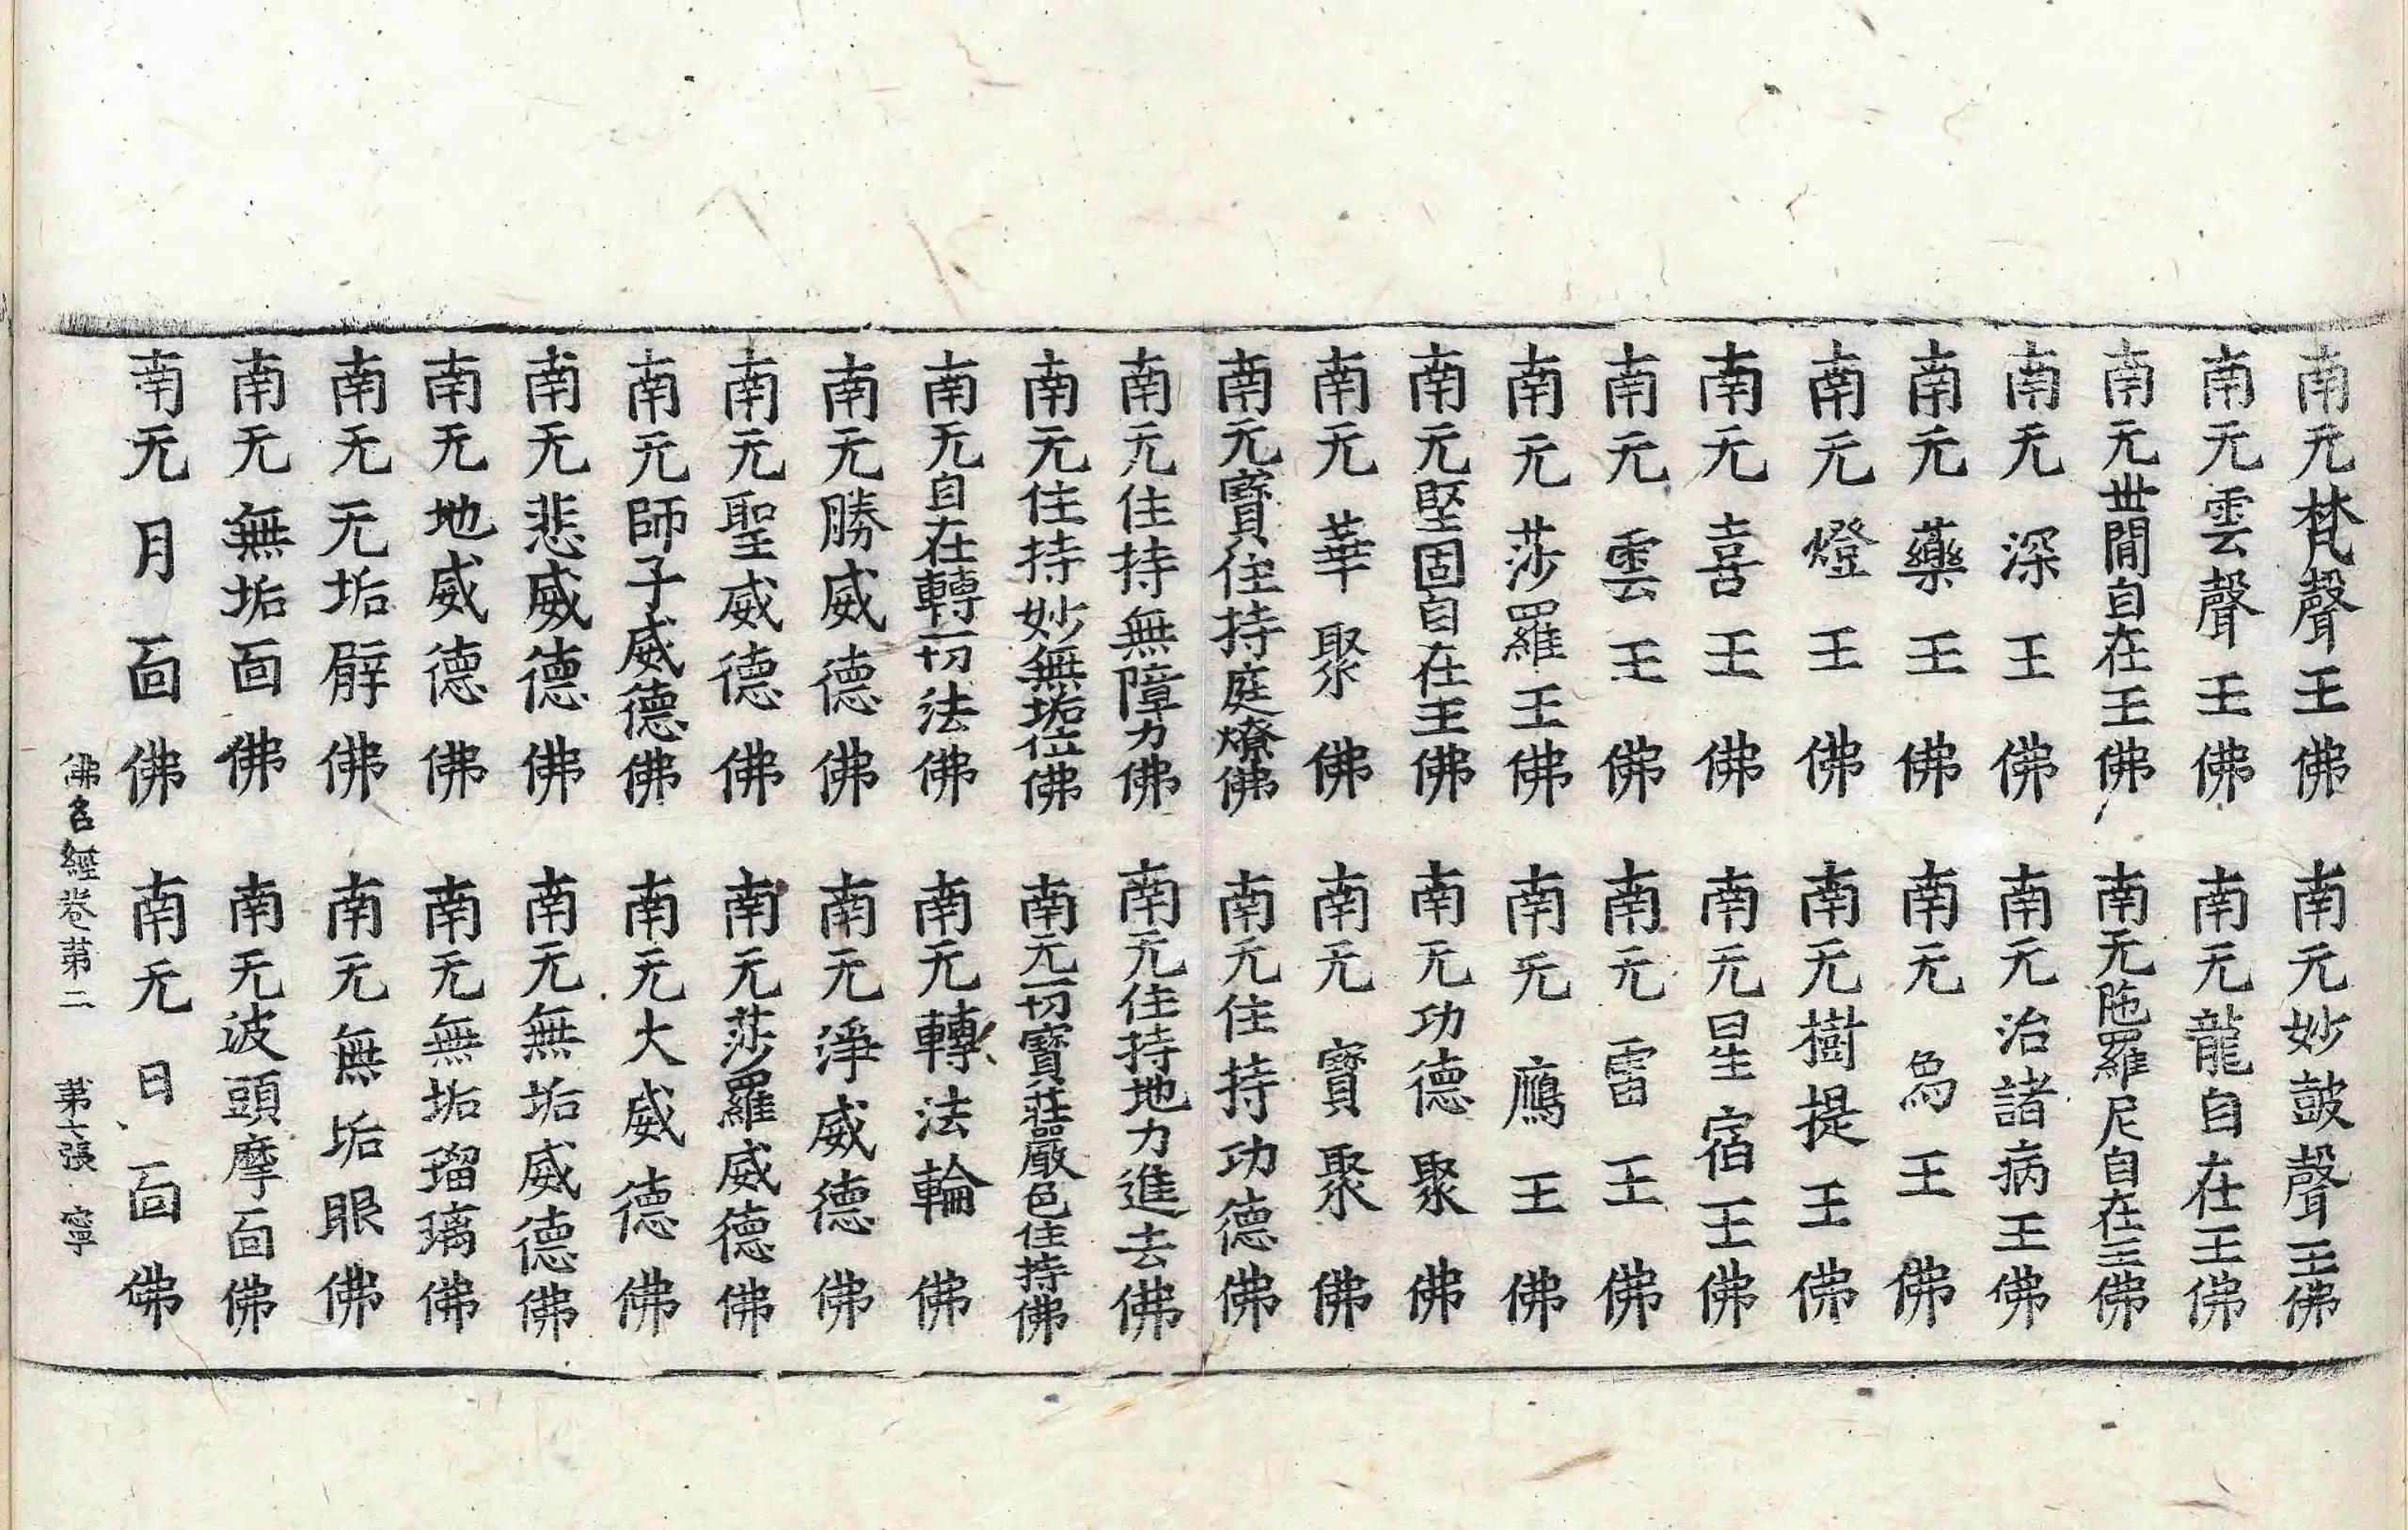 南无梵聲王佛 南无妙皷聲王佛
南无雲聲王佛 南无龍自在王佛
南无世間自在王佛 南无陁羅尼自在王佛
南无深王佛 南无治諸病王佛
南无藥王佛 南无王佛
南无燈王佛 南无樹提王佛
南无喜王佛 南无星宿王佛
南无雲王佛 南无雷王佛
南无莎羅王佛 南无鷹王佛
南无堅固自在王佛 南无功德聚佛
南无華聚佛 南无寶聚佛
南无寶住持庭燎佛 南无住持功德佛
南无住持無障力佛 南无住持地力進去佛
南无住持妙無垢位佛 南无一切寶莊嚴色住持佛
南无自在轉一切法佛 南无轉法輪佛
南无勝威德佛 南无淨威德佛
南无聖威德佛 南无莎羅威德佛
南无師子威德佛 南无大威德佛
南无悲威德佛 南无無垢威德佛
南无地威德佛 南无無垢瑠璃佛
南无无垢臂佛 南无無垢眼佛
南无無垢面佛 南无波頭摩面佛
南无月面佛 南无日面佛
佛名經卷第二 第七張 寧